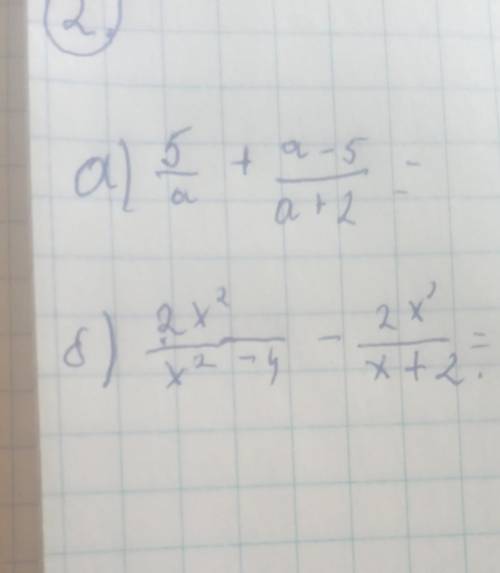 2.
а) 5/a + a-5/a+2 =
б) 2x²/x²-4 - 2x/x+2 =